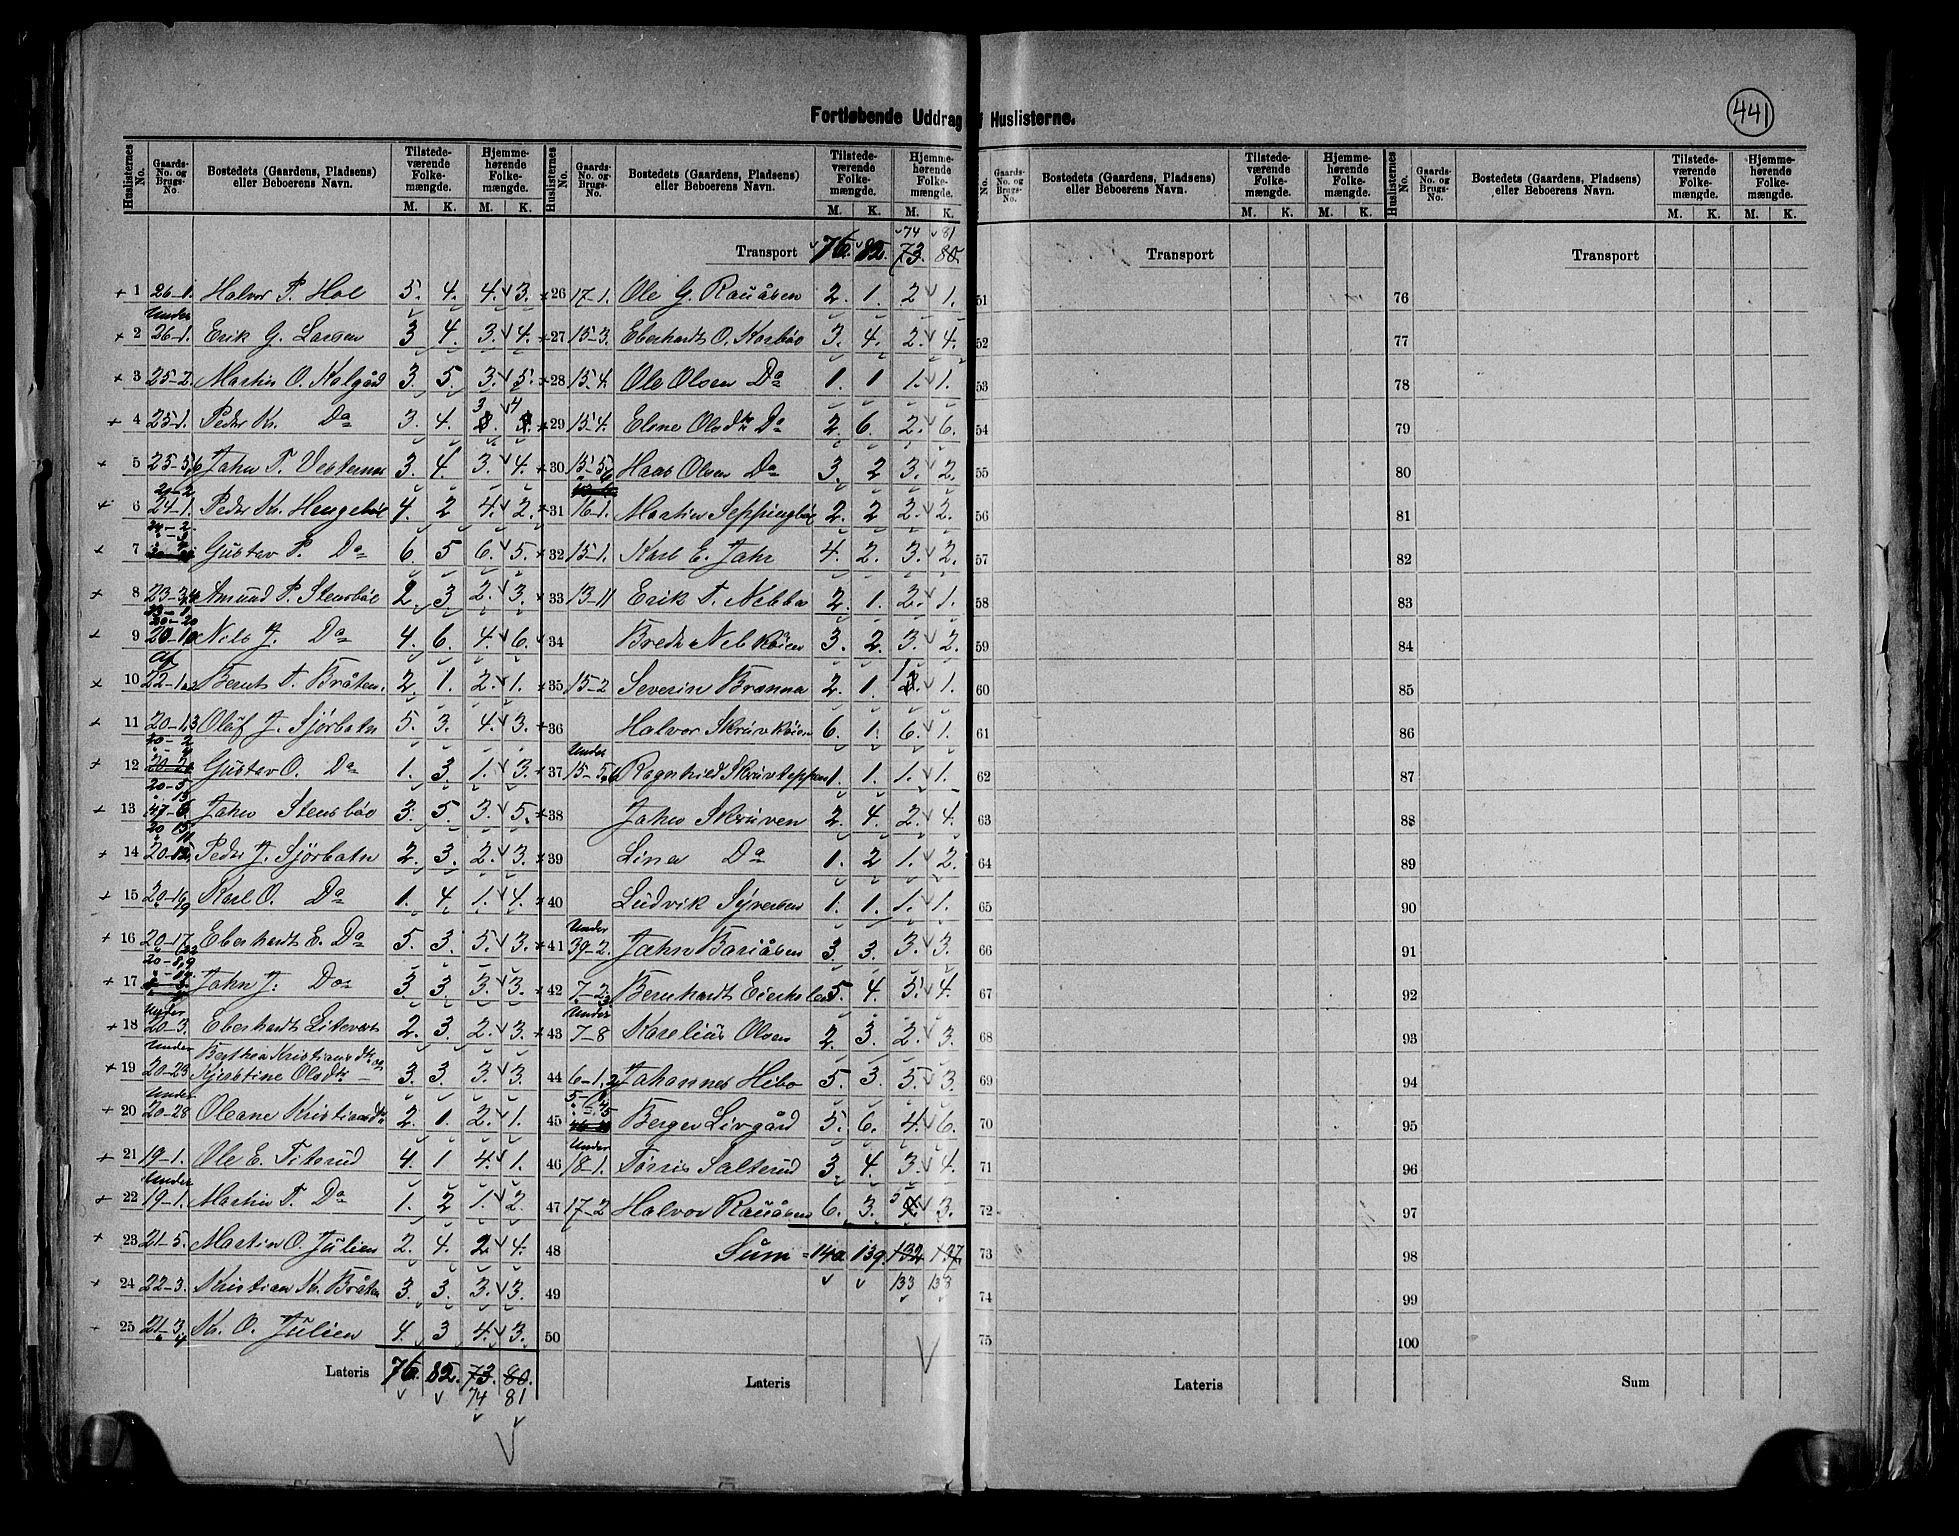 441
Fortløbende Uddrag af Huslisterne.
Huslisternes No. Gaards-No. og Brugs-No. Bostedets (Gaardens, Pladsens) eller Beboerens Navn. Tilstedeværende Folkemængde. M. K. Hjemmehørende Folkemængde. M. K.
1 26-1. Halvor P. Hol 5. 4. 4. 3.
2 Under 26-1. Erik G. Larsen 3 4. 3. 4.
3 25-2. Martin O. Kalgård 3. 5. 3. 5.
4 25-1. Peder Kr. Do 3. 4. 3 4
5 25-5,6 John T. 3. 4. 3. 4.
6 24-1. Peder Kr. 4. 2 4. 2.
7 Gustav P. Do 6. 5 6. 5.
8 23-3,4 Amund P. Stensböe 2. 3 2. 3.
9 20-10 Nils J. Do 4. 6. 4. 6.
10 Af 22-1 Bernt T. Bråten 2. 1. 2. 1.
11 20-1,3 Olaf J. Sjörbotn 5. 3. 4. 3.
12 Gustav O. Do 1. 3. 1. 3.
13 John Stensböe 3. 5. 3. 5.
14 20-12 Peder J. Sjörbotn 2. 3. 2. 3.
15 20-16 Karl O. Do 1. 4. 1. 4.
16 20-17 Eberhardt E. Do 5. 3. 5. 3.
17 John J. Do 3. 3. 3. 3.
18 Under 20-3. Eberhardt 2. 3. 2. 3.
19 Under 20-23 Berthea Kristiansdtr og Kjerstine Olsdtr 3. 3. 3. 3.
20 Under 20-28 Oleane Kristiansdtr 2. 1. 2. 1.
21 19-1. Ole E. Titerud 4. 1 4. 1.
22 Under 19-1. Martin T. Do 1. 2 1. 2.
23 21-5. Martin O. Julien 2. 4. 2. 4.
24 22-3. Kristian Kr. Bråten 3. 3. 3. 3.
25 21-3,4 Kr. O. Julien 4. 3 4. 3.
Lateris 76. 82. 73. 80.
74 81
74 81
Transport 76. 82. 73. 80.
26 17-1. Ole G. Rauåsen 2. 1. 2 1.
27 15-3. Eberhardt O. Korsböe 3. 4. 2. 4.
28 15-4. Ole Olsen Do 1. 1 1. 1.
29 15-4. Elene Olsdtr Do 2 6. 2. 6.
30 15-5,6 Hans Olsen Do 3. 2 3. 2.
31 16-1. Martin 2. 2 2. 2.
32 15-1. Karl E. Jahr 4. 2. 3. 2.
33 13-11 Erik T. 2. 1. 2. 1.
34 3. 2. 3. 2.
35 15-2 Severin Brænna 2. 1. 1 1.
36 Halvor 6. 1. 6. 1.
37 Under 15-5,6 Ragnhild 1. 1. 1. 1.
38 John Skruven 2. 4. 2. 4.
39 Lina Do 1. 2 1. 2.
40 Ludvik Syversen 1. 1. 1. 1.
41 Under 39-2. John 3. 3. 3. 3.
42 7-2,3 Bernhardt 5. 4. 5. 4.
43 Under 7-8 Karelius Olsen 2. 3. 2. 3.
44 6-1.2 Johannes Hibo 5. 3. 5. 3.
45 Berger Livgård 5. 6. 4. 6.
46 Under 18-1. Torris Salterud 3. 4. 3. 4.
47 17-2 Halvor Rauåsen 6. 3. 5 3.
48 Sum = 140 139. 132 137.
49 133 138
50
Lateris
No. Gaards-No. og Brugs-No. Bostedets (Gaardens, Pladsens) eller Beboerens Navn. Tilstedeværende Folkemængde. M. K. Hjemmehørende Folkemængde. M. K.
Transport
51
52
53
54
55
56
57
58
59
60
61
62
63
64
65
66
67
68
69
70
71
72
73
74
75
Lateris
Huslisternes No. Gaards-No. og Brugs-No. Bostedets (Gaardens, Pladsens) eller Beboerens Navn. Tilstedeværende Folkemængde. M. K. Hjemmehørende Folkemængde. M. K.
Transport
76
77
78
79
80
81
82
83
84
85
86
87
88
89
90
91
92
93
94
95
96
97
98
99
100
Sum